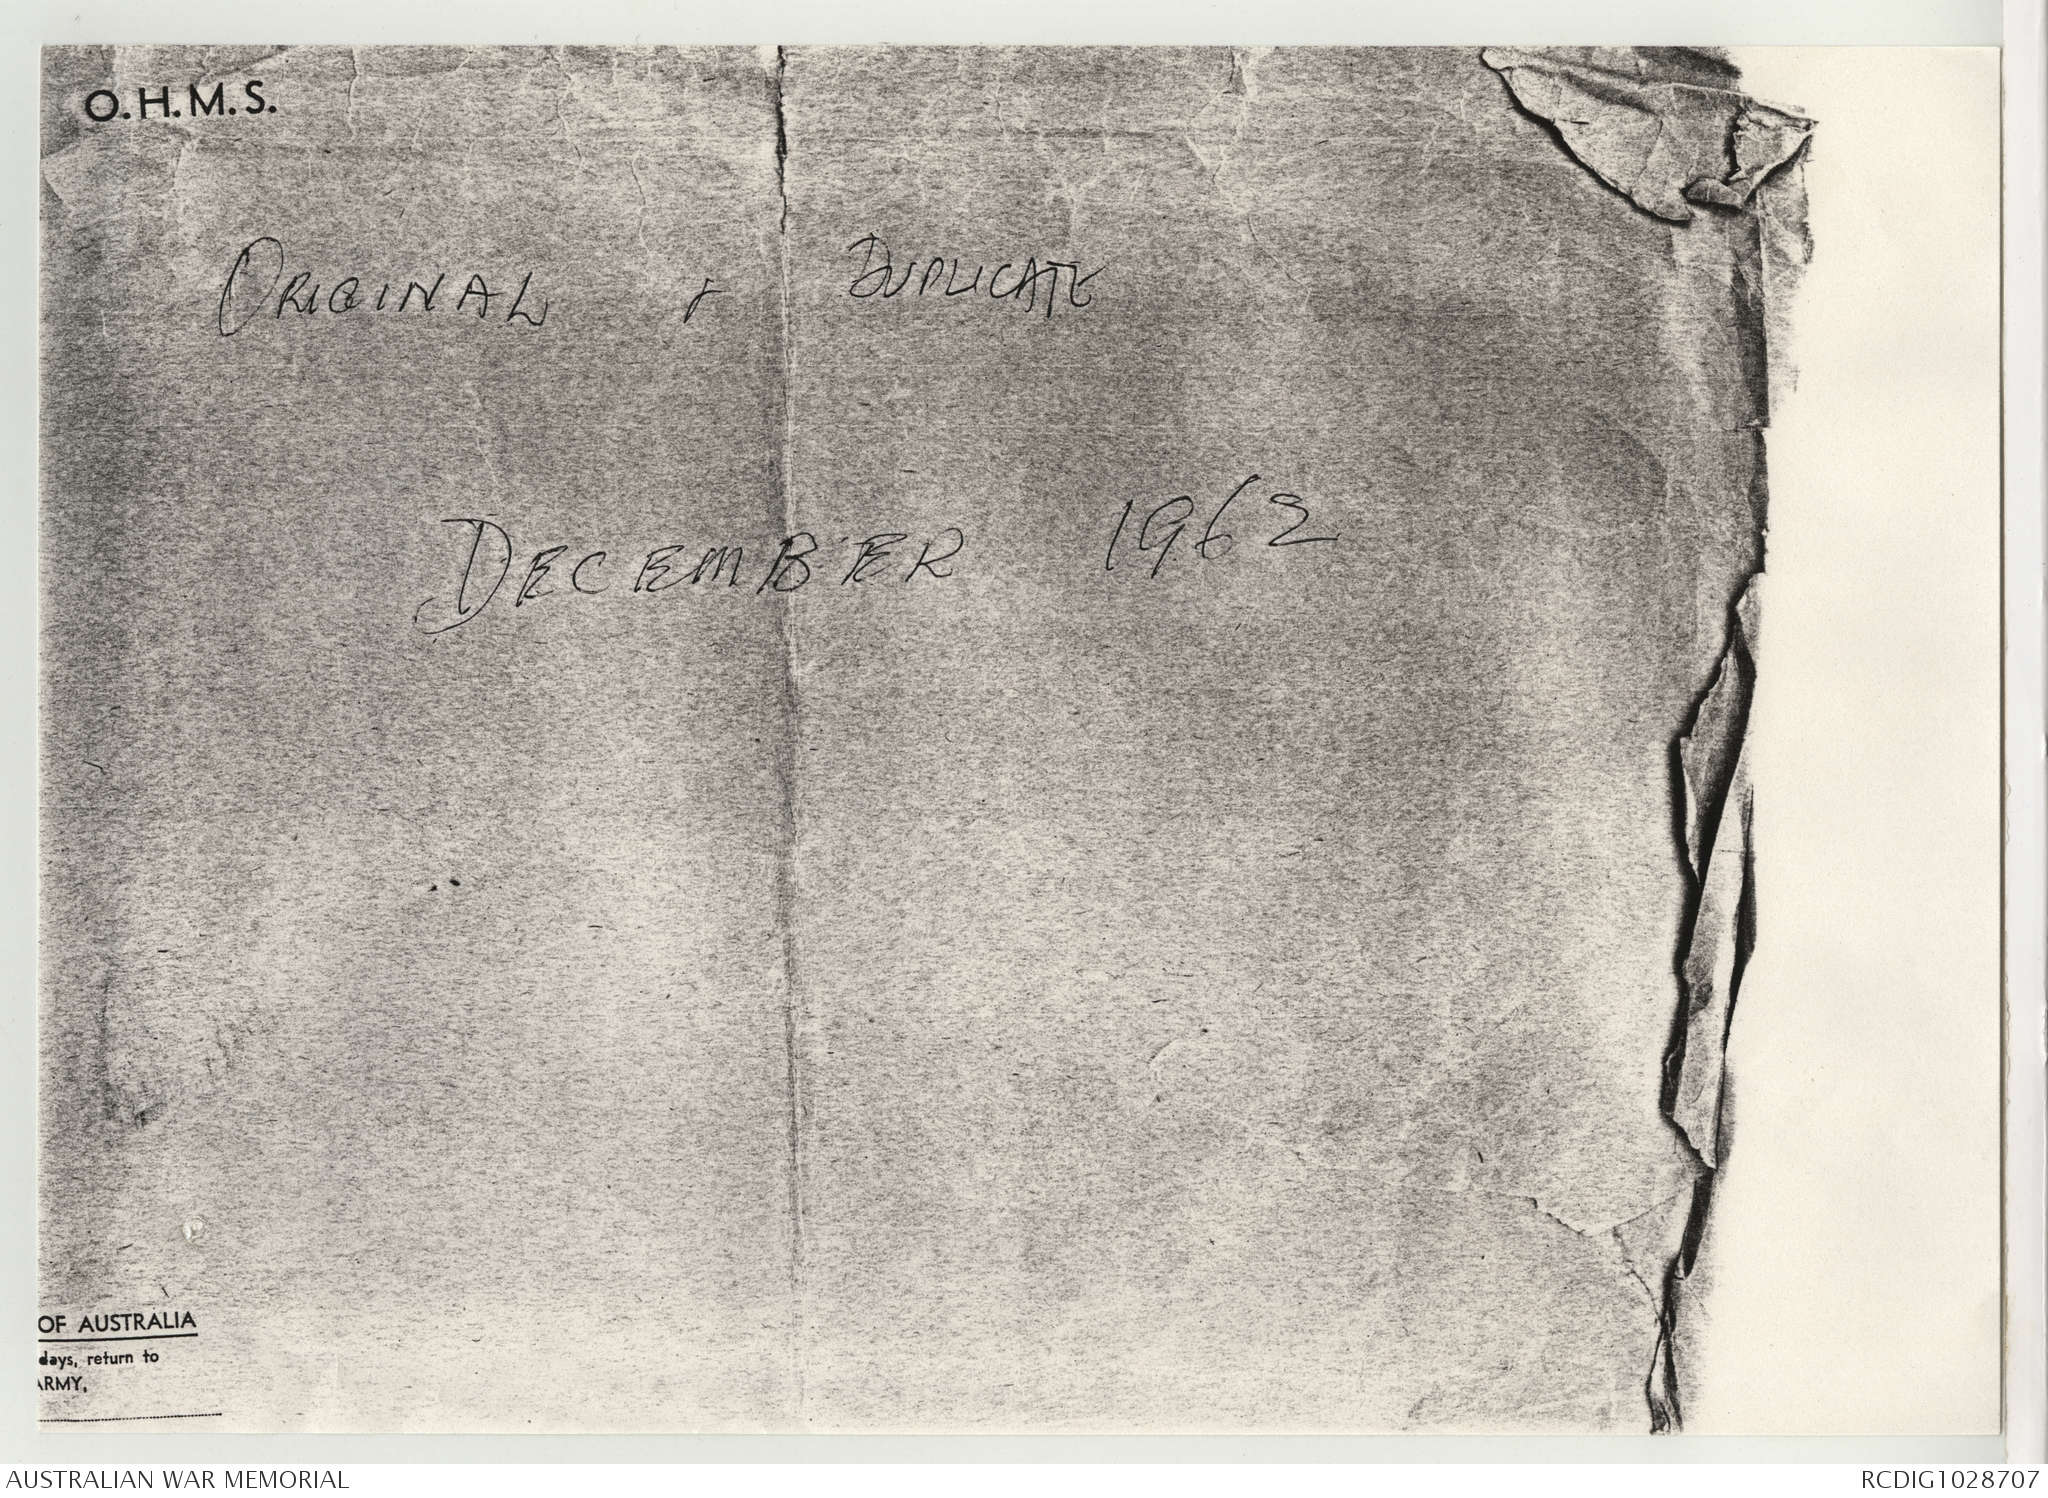 O.H.M.S.
ORIGINAL & DUPLICATE
DECEMBER 1962
OF AUSTRALIA
days, return to
ARMY,
AUSTRALIAN WAR MEMORIAL
RCDIG1028707